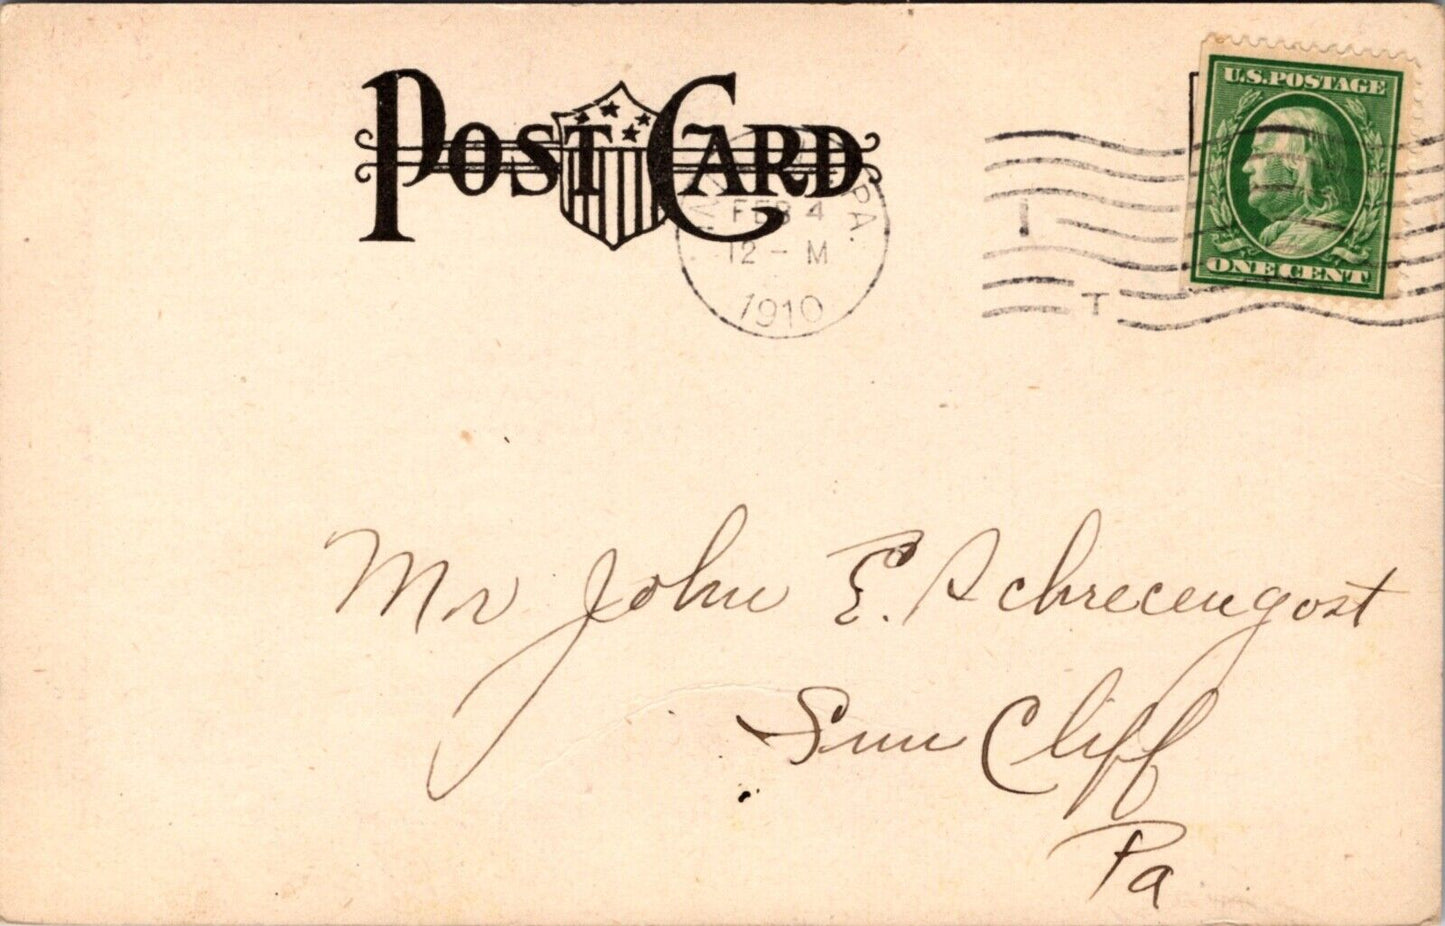 POST CARD
U.S. POSTAGE
ONE CENT
PA.
FEB 4
12 - M
1910
I
T
Mr John E. Schrecengost
Sun Cliff
Pa